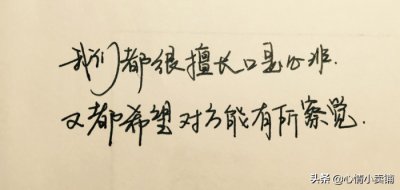 我们都很擅长口是心非.
又都希望对方能有所察觉.
头条 @心情小卖铺